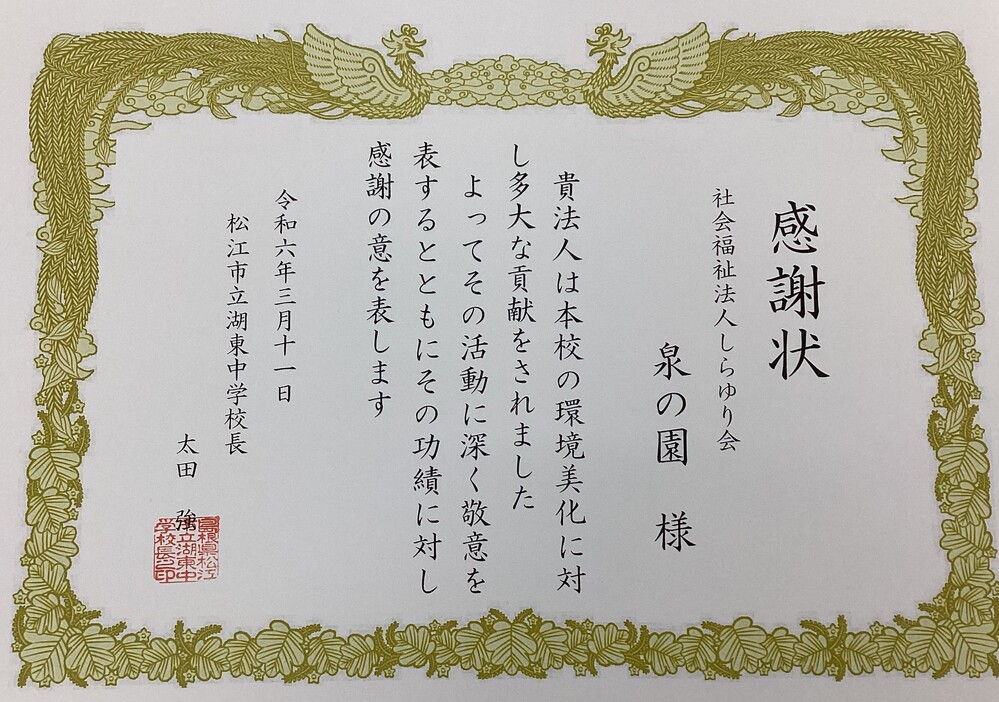 感謝状
社会福祉法人しらゆり会
泉の園 様
貴法人は本校の環境美化に対
し多大な貢献をされました
よってその活動に深く敬意を
表するとともにその功績に対し
感謝の意を表します
令和六年三月十一日
松江市立湖東中学校長
太田 強
島根県松江
市立湖東中
学校長之印